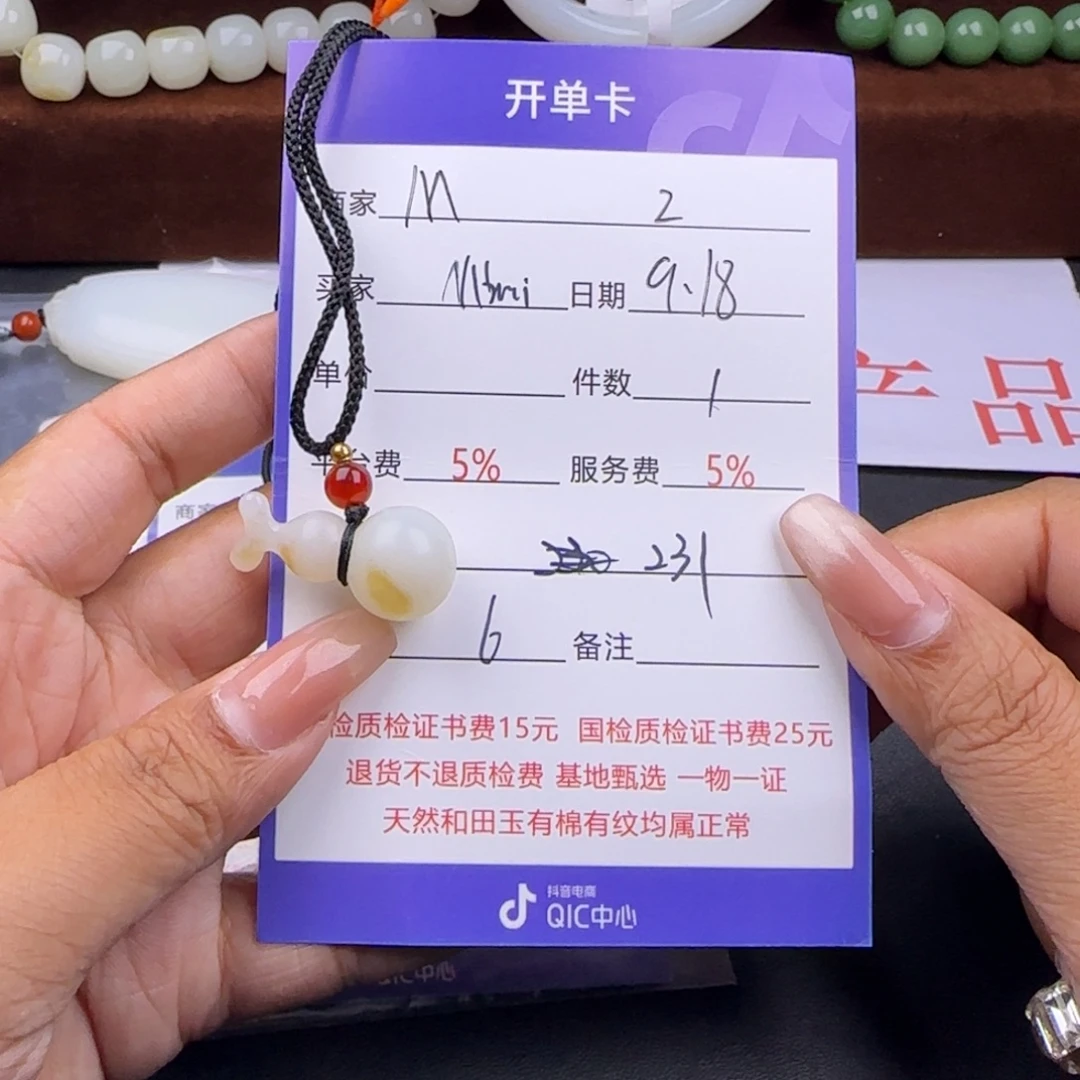 开单卡
商家 M 2
买家 日期 9.18
单价 件数 1
平台费 5% 服务费 5%
231
6 备注
检质检证书费15元 国检质检证书费25元
退货不退质检费 基地甄选 一物一证
天然和田玉有棉有纹均属正常
抖音电商
QIC中心
产品
商家
QIC中心